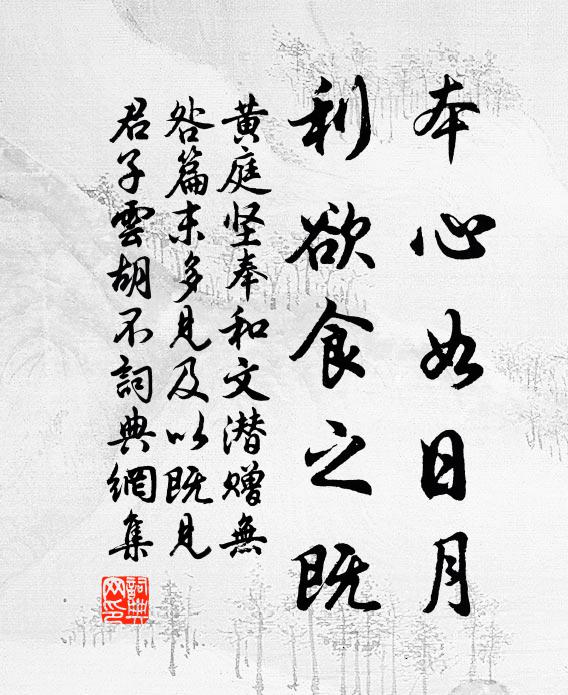 本心如日月
利欲食之既
黄庭坚奉和文潜赠無
咎篇末多見及以既見
君子雲胡不詞典網集
詞典